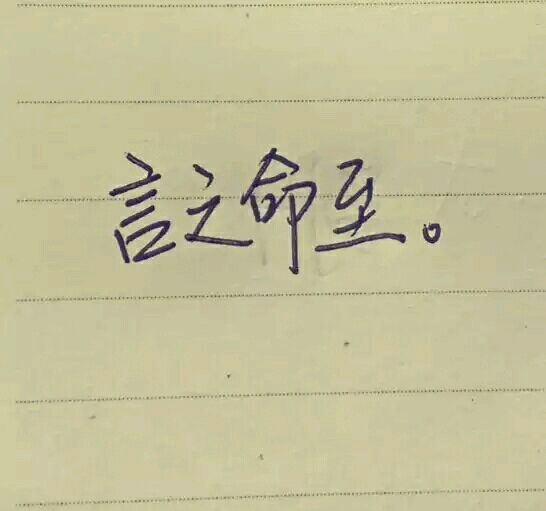 言之命至。